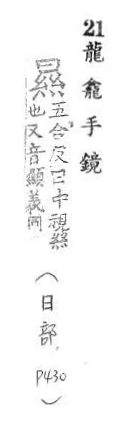 21龍龕手鏡
㬎五合反日中視絲
也又音顯義同
（日部, P430）